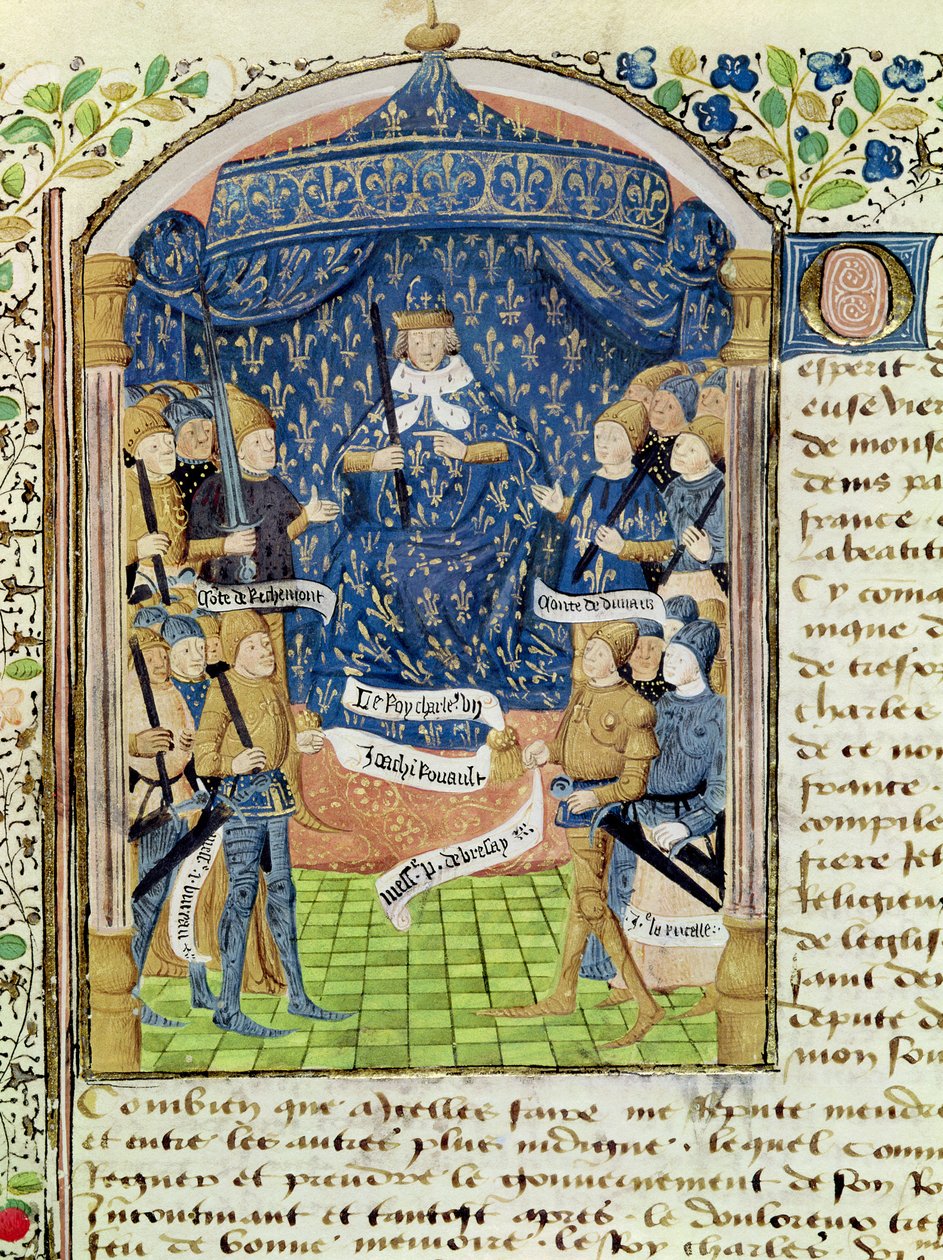 Côte de Richemont
Conte de dunais
Le Roy charles vij
Joachi Rouault
mess.e p. de bresay
J.e la pucelle
esperit d
euse vier
de mons
denis pa
france
La beatit
Cy com̄a
nique d
de tresx
charles
de ce nom
france
compile
frere Jeh
Religieux
de leglis
saint den
depute d
mon sou
Combien que a Icelles faire me Repute mendre
et entre les autres plus indigne . lequel Comm
Regner et prendre le gouvernement de son Ro
Incontinant et tantost apres . le douloreux tres
feu de bonne memoire . le Roy charles